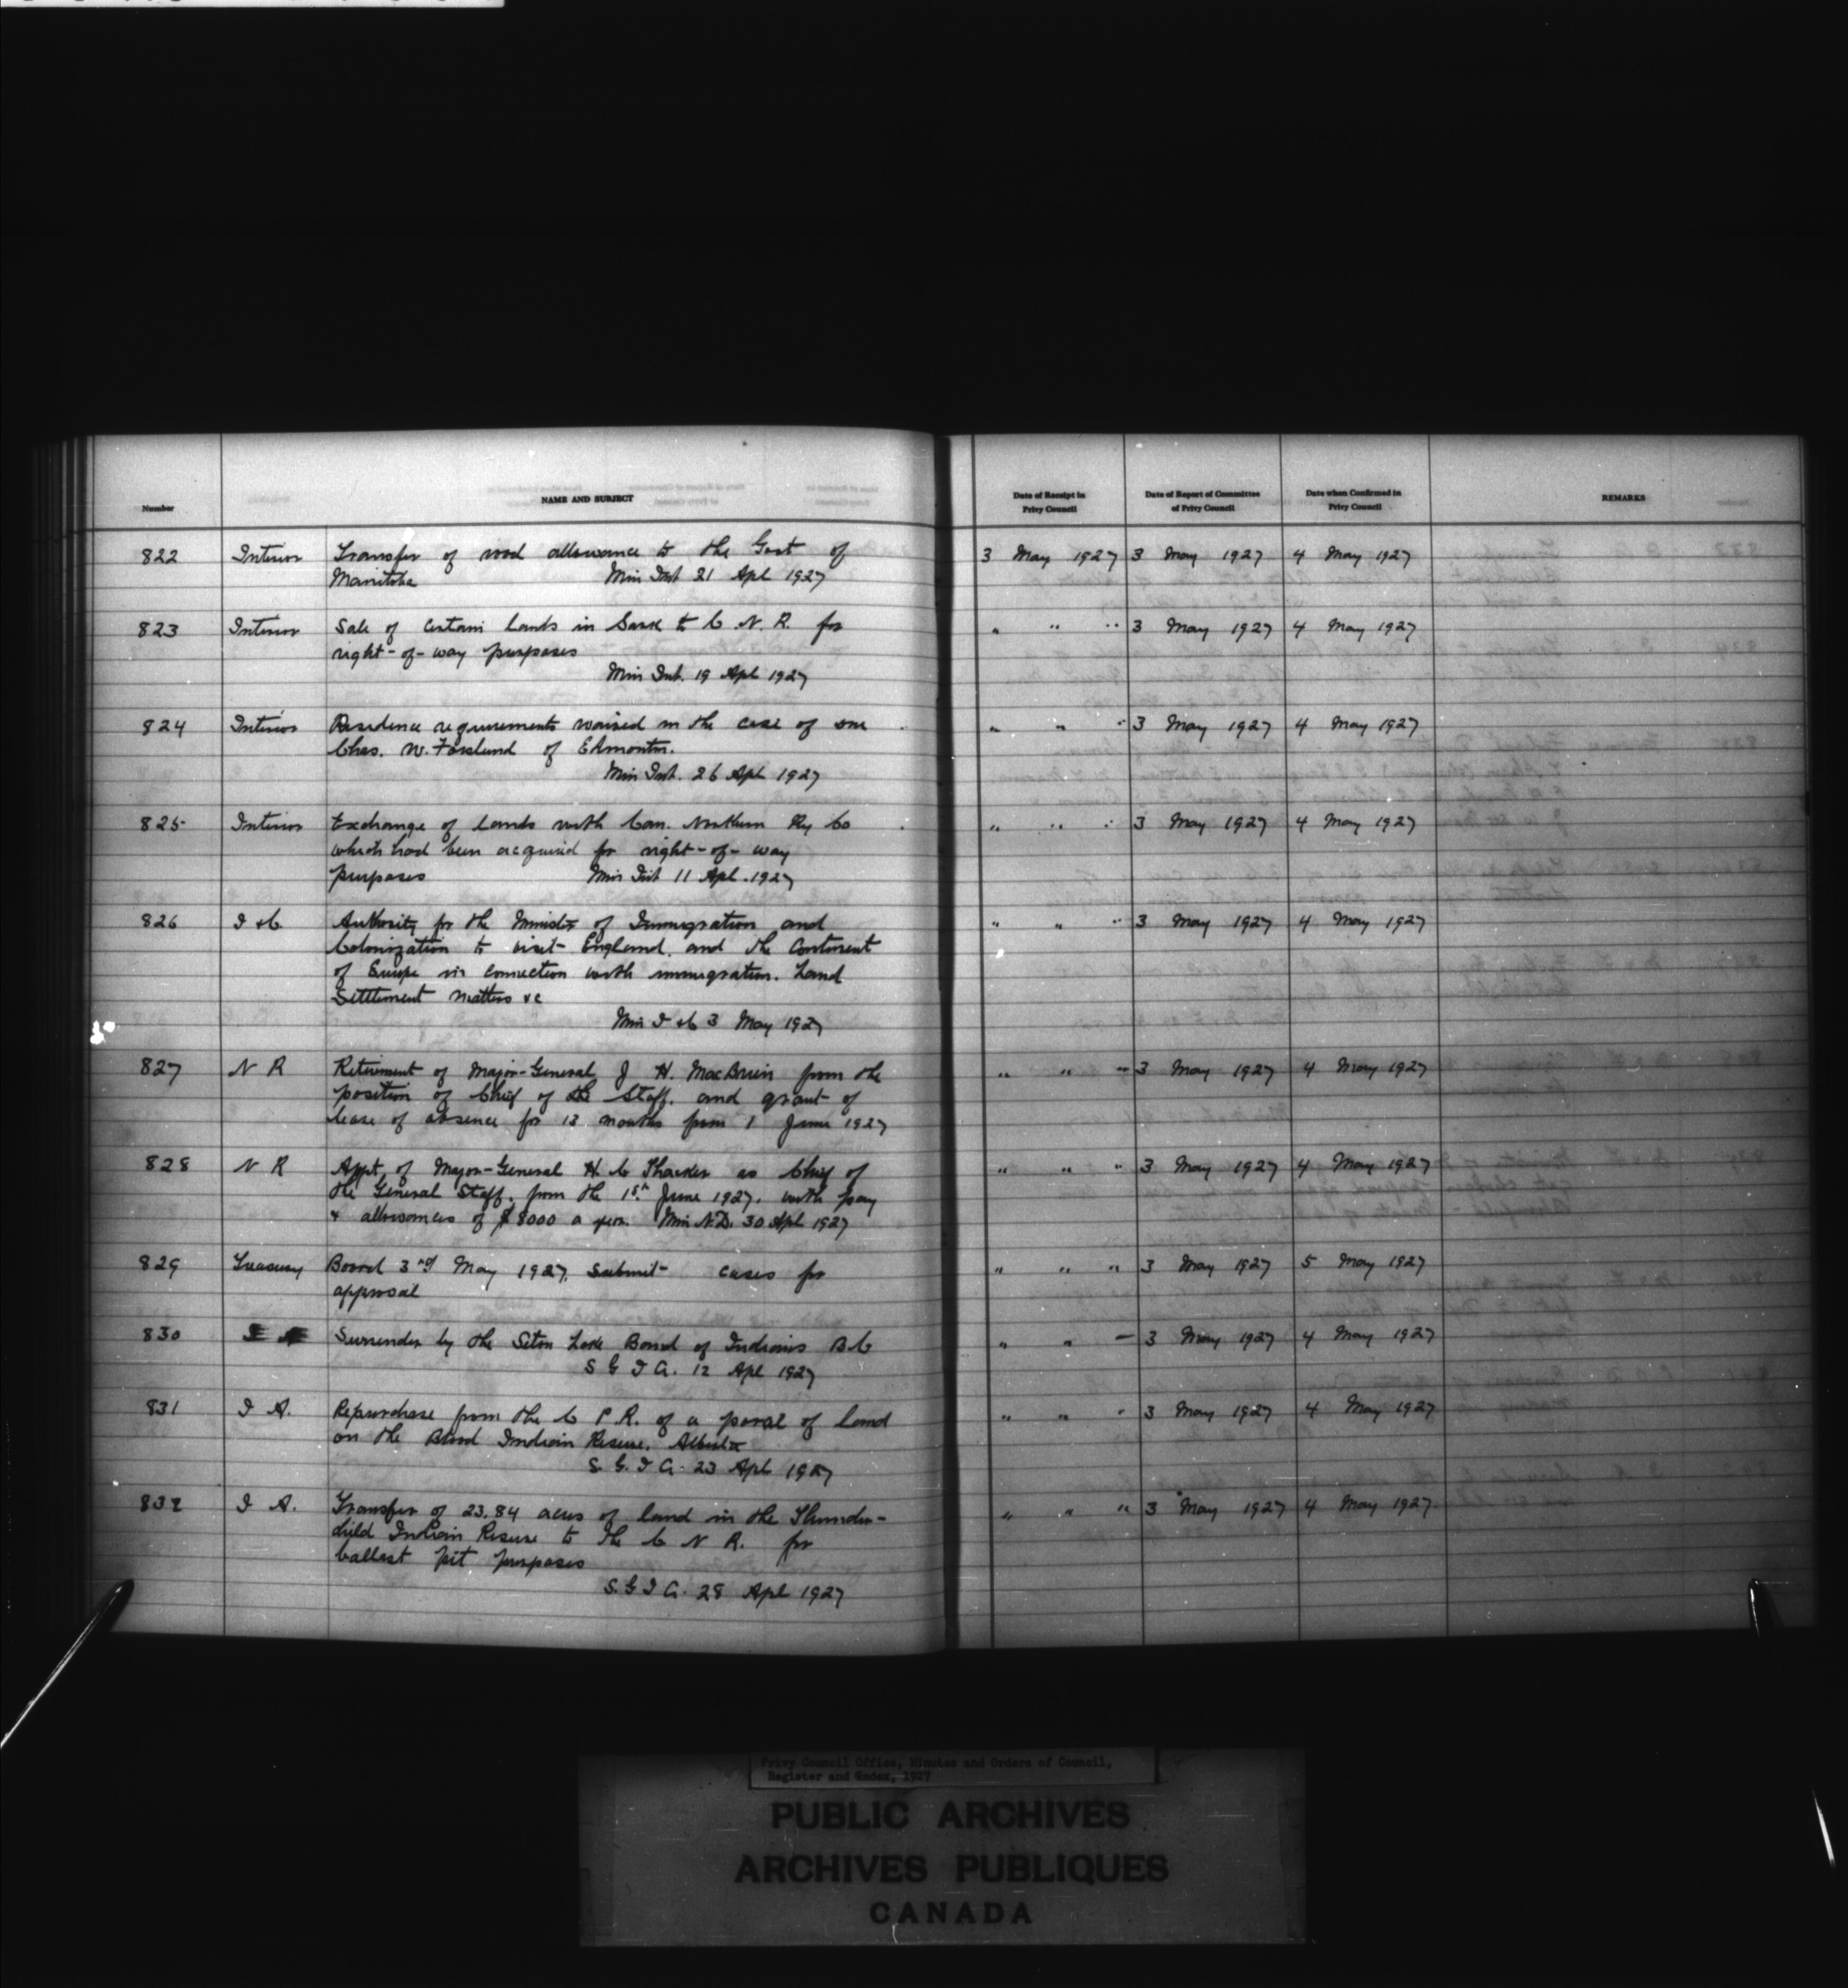 Number NAME AND SUBJECT Date of Receipt in Privy Council Date of Report of Committee of Privy Council Date when Confirmed in Privy Council REMARKS
822 Interior Transfer of road allowance to the Govt of 3 May 1927 3 May 1927 4 May 1927
Manitoba Min Int 21 Apl 1927
823 Interior Sale of certain lands in Sask to C. N. R. for " " " 3 May 1927 4 May 1927
right-of-way purposes
Min Int. 19 Apl 1927
824 Interior Residence requirements waived in the case of one " " " 3 May 1927 4 May 1927
Chas. W. Forslund of Edmonton.
Min Int. 26 Apl 1927
825 Interior Exchange of lands with Can. Northern Ry Co " " " 3 May 1927 4 May 1927
which had been acquired for right-of-way
purposes Min Int 11 Apl. 1927
826 I & C. Authority for the Minister of Immigration and " " " 3 May 1927 4 May 1927
Colonization to visit England. and the Continent
of Europe in connection with immigration. Land
Settlement matters &c
Min I & C 3 May 1927
827 N R Retirement of Major-General J H. MacBrien from the " " " 3 May 1927 4 May 1927
position of Chief of the Staff. and grant of
leave of absence for 13 months from 1 June 1927
828 N R Appt. of Major-General H C Thacker as Chief of " " " 3 May 1927 4 May 1927
the General Staff. from the 1st June 1927. with pay
& allowances of $8000 a year. Min N.D. 30 Apl 1927
829 Treasury Board 3rd May 1927. submit cases for " " " 3 May 1927 5 May 1927
approval
830 Surrender by the Seton Lake Band of Indians B C " " — 3 May 1927 4 May 1927
S G I A. 12 Apl 1927
831 I A. Repurchase from the C P. R. of a parcel of land " " " 3 May 1927 4 May 1927
on the Blood Indian Reserve. Alberta
S. G. I A. 23 Apl 1927
832 I A. Transfer of 23.84 acres of land in the Thunder- " " " 3 May 1927 4 May 1927.
child Indian Reserve to the C N R. for
ballast pit purposes
S. G I A. 28 Apl 1927
Privy Council Office, Minutes and Orders of Council,
Register and Index, 1927
PUBLIC ARCHIVES
ARCHIVES PUBLIQUES
CANADA